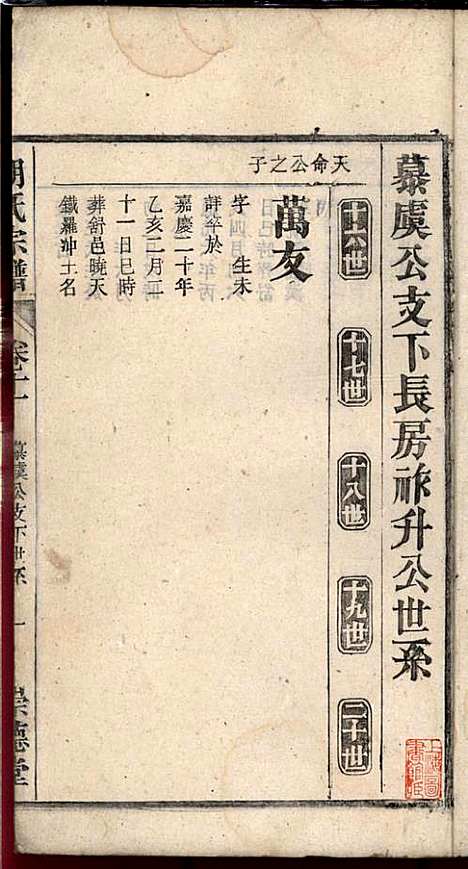 慕虞公支下長房祚升公世系
十六世
十七世
十八世
十九世
二十世
天命公之子
萬友
字　生未
詳卒於
嘉慶二十年
乙亥二月二
十一日巳時
葬舒邑曉天
鐵羅冲土名
胡氏宗譜
卷十一
慕虞公支下世系
一
崇德堂